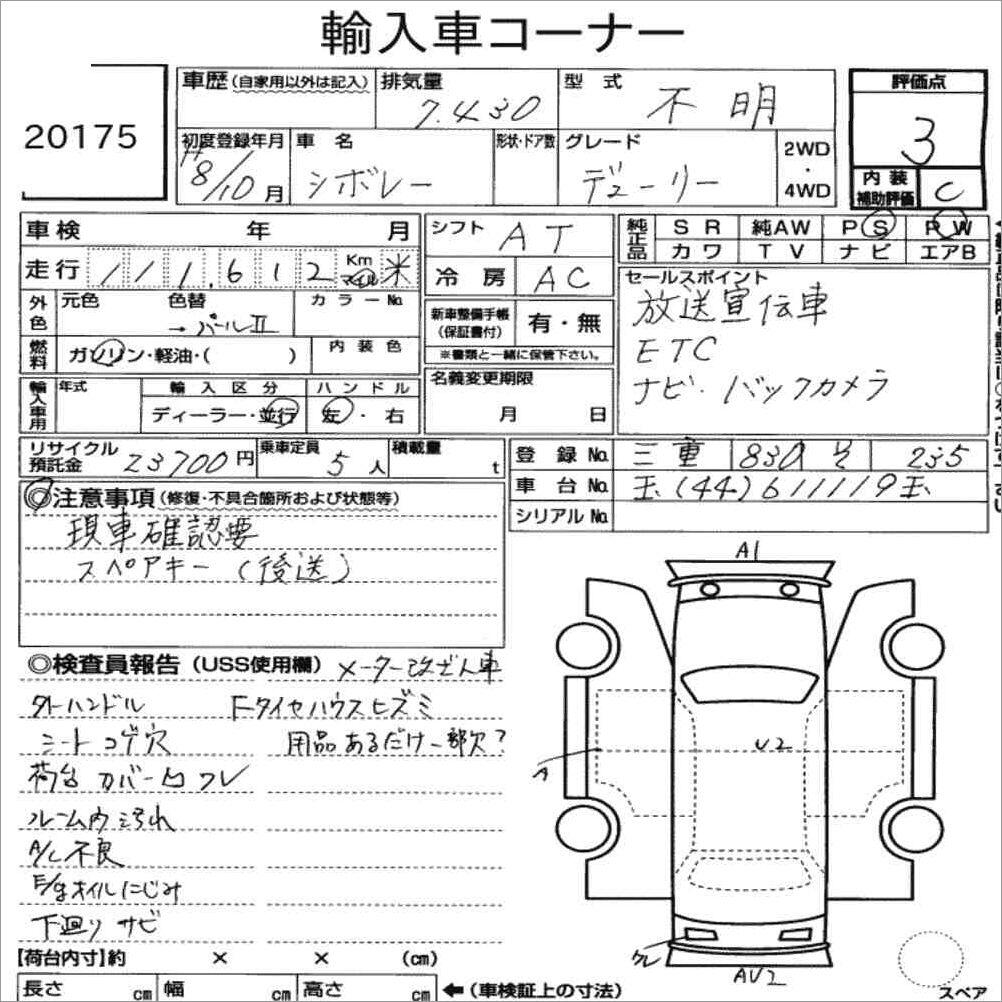 輸入車コーナー
20175
車歴(自家用以外は記入) 排気量 7.430 型式 不明 評価点 3
初度登録年月 H8/10月 車名 シボレー 形状・ドア数 グレード デューリー 2WD・4WD 内装補助評価 C
車検 年 月 シフト AT 純正品 SR 純AW PS PW
走行 111,612 Km マイル 米 冷房 AC カワ TV ナビ エアB
外色 元色 色替 →パールII カラーNo. 新車整備手帳(保証書付) 有・無 セールスポイント
※書類と一緒に保管下さい。
放送宣伝車
ETC
ナビ・バックカメラ
燃料 ガソリン・軽油・( ) 内装色
名義変更期限 月 日
輸入車用 年式 輸入区分 ディーラー・並行 ハンドル 左・右
リサイクル預託金 23700円 乗車定員 5人 積載量 t 登録No. 三重 830 そ 235
車台No. 玉(44)611119玉
シリアルNo.
◎注意事項(修復・不具合箇所および状態等)
現車確認要
スペアキー(後送)
◎検査員報告(USS使用欄) メーター改ざん車
外ハンドル Fタイヤハウスヒズミ
シートコゲ穴 用品あるだけ一部欠?
荷台カバー凹ワレ
ルーム内汚れ
A/C不良
E/gオイルにじみ
下廻りサビ
【荷台内寸】約 × × (cm)
長さ cm 幅 cm 高さ cm ←(車検証上の寸法)
A1
U2
A
ワレ
AU2
スペア